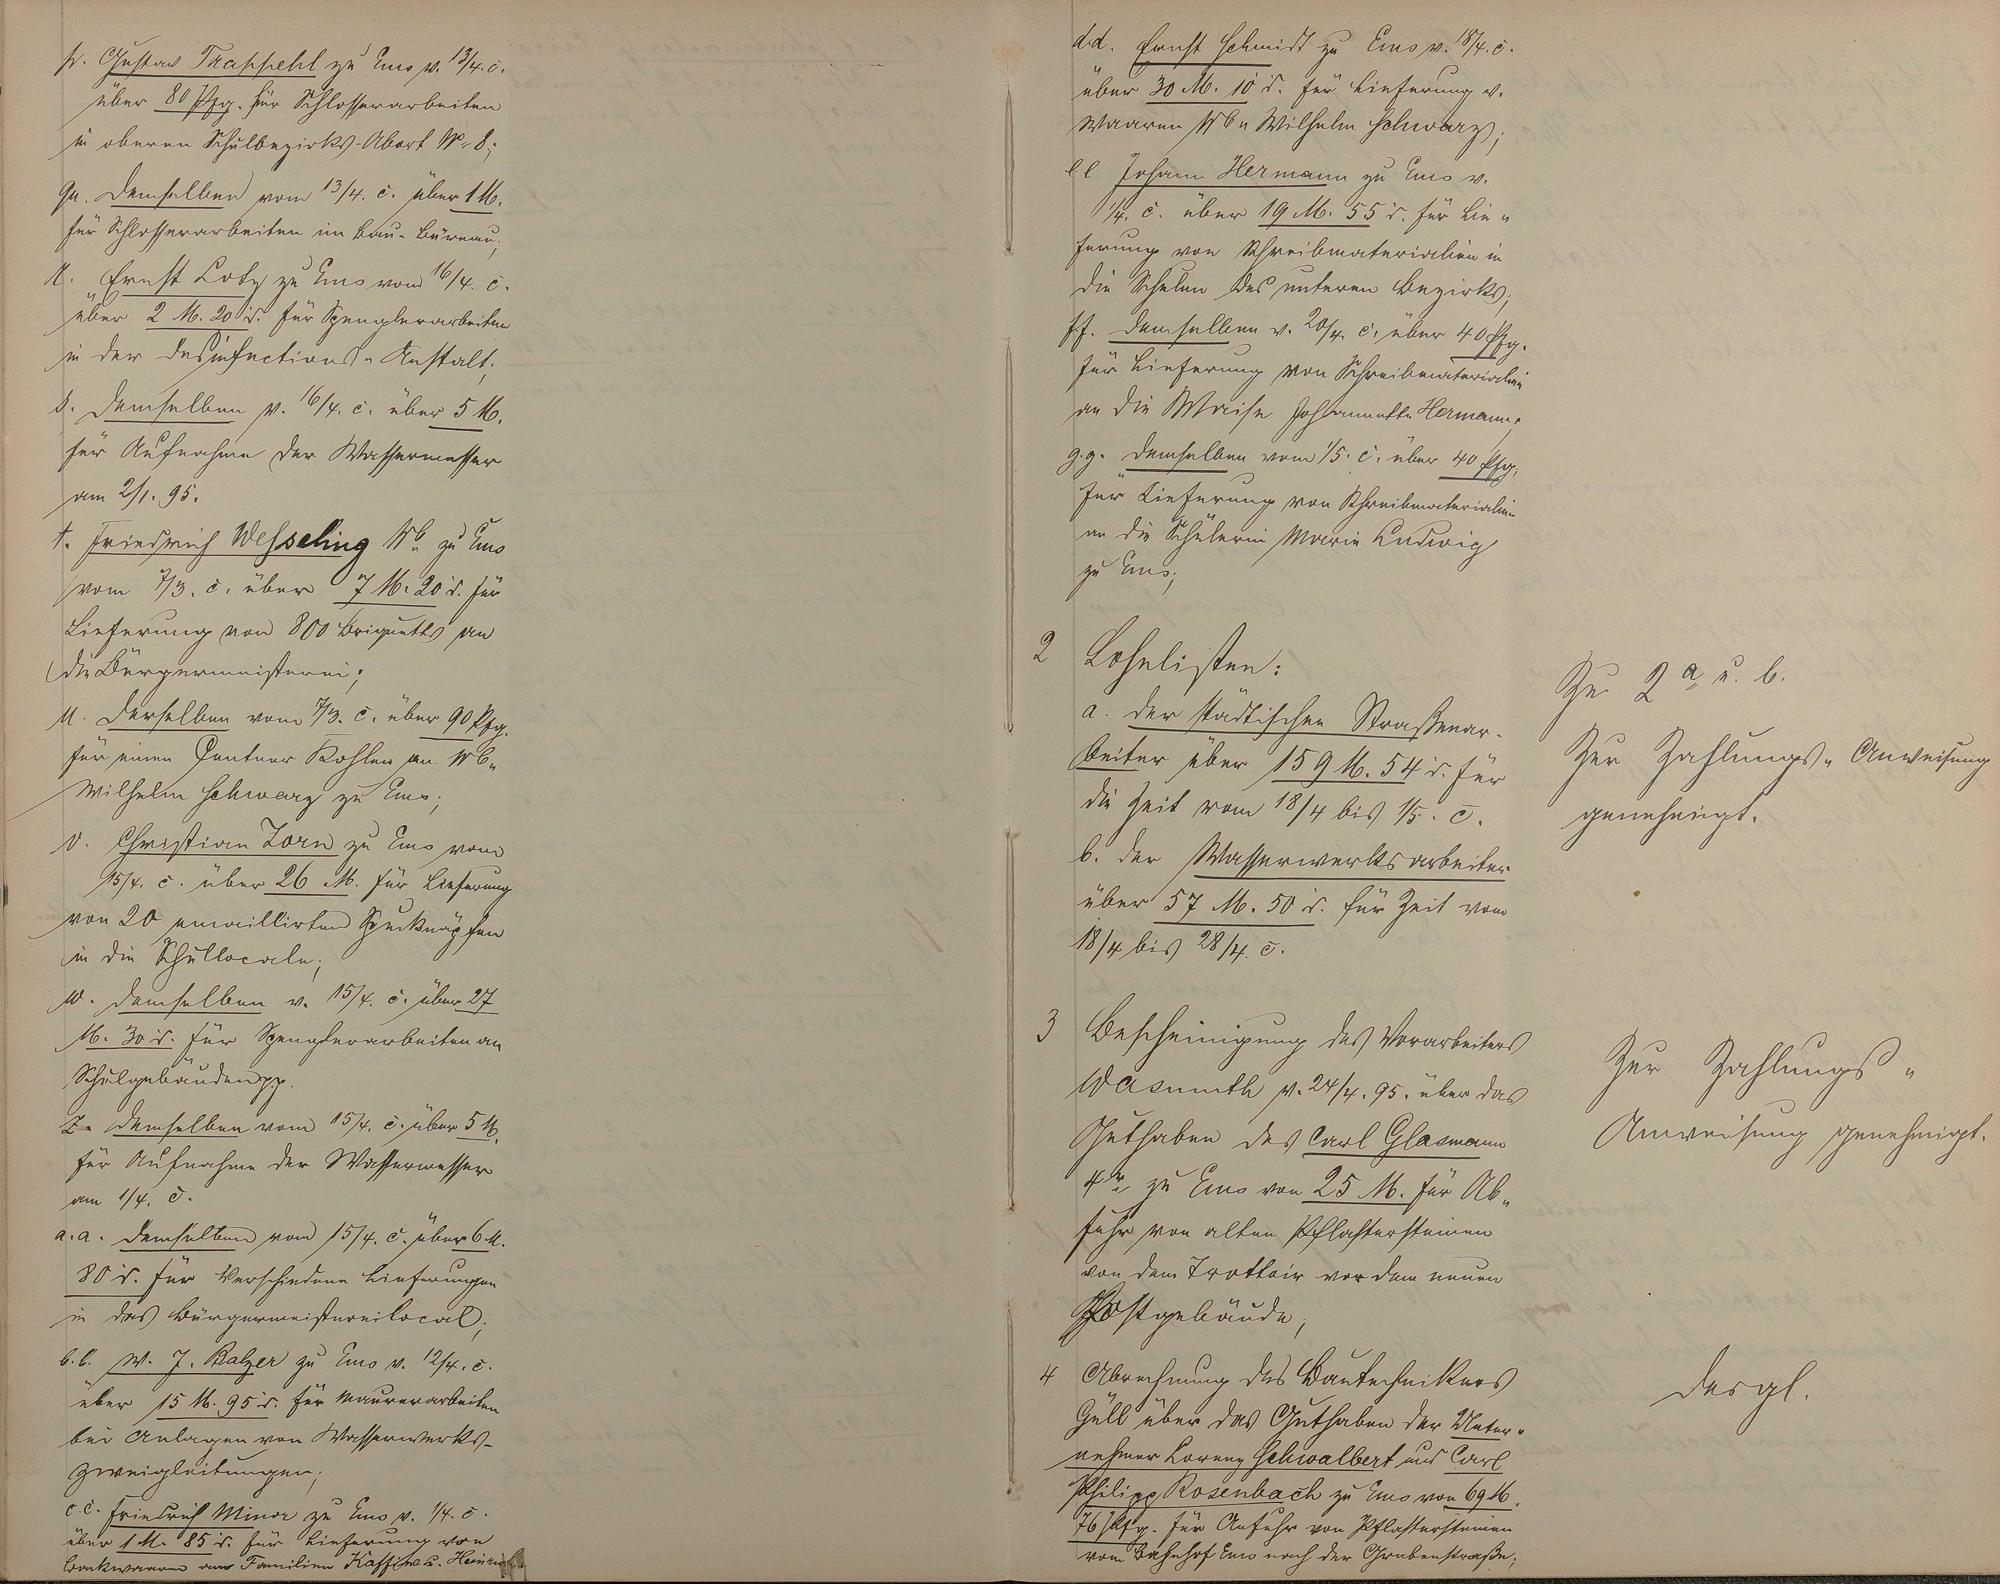 p. Gustav Trappehl zu Ems v. 13/4. c.
über 80 Pfg. für Schlosserarbeiten
in oberen Schulbezirks-Abort No 8;
qu. demselben vom 13/4. c. über 1 M.
für Schlosserarbeiten im Bau-Büreau;
r. Ernst Lotz zu Ems vom 16/4. c.
über 2 M. 20 d. für Spenglerarbeiten
in der Desinfections-Anstalt;
s. demselben v. 16/4. c. über 5 M.
für Aufnahme der Wassermesser
am 2/1. 95.
t. Friedrich Wesseling Wb. zu Ems
vom 7/3. c. über 7 M. 20 d. für
Lieferung von 800 Briquetts an
die Bürgermeisterei;
u. derselben vom 7/3. c. über 90 Pfg.
für einen Centner Kohlen an Wb.
Wilhelm Schwarz zu Ems;
v. Christian Zorn zu Ems vom
15/4. c. über 26 M. für Lieferung
von 20 emaillirten Spucknäpfen
in die Schullocale;
w. demselben v. 15/4. c. über 27
M. 30 d. für Spenglerarbeiten an
Schulgebäuden pp.
z. demselben vom 15/4. c. über 5 M.
für Aufnahme der Wassermesser
am 1/4. c.
a.a. demselben vom 15/4. c. über 6 M.
80 d. für verschiedene Lieferungen
in das Bürgermeistereilocal;
b.b. W. J. Balzer zu Ems v. 12/4. c.
über 15 M. 95 d. für Maurerarbeiten
bei Anlagen von Wasserwerks-
zweigleitungen;
c.c. Friedrich Minor zu Ems v. 1/4. c.
über 1 M. 85 d. für Lieferung von
Backwaaren an Familien u.
d.d. Ernst Schmidt zu Ems v. 18/4. c.
über 30 M. 10 d. für Lieferung v.
Waaren Wb. Wilhelm Schwarz;
ee Johann Hermann zu Ems v.
1/4. c. über 19 M. 55 d. für Lie-
ferung von Schreibmaterialien in
die Schulen des unteren Bezirks;
ff. demselben v. 20/4. c. über 40 Pfg.
für Lieferung von Schreibmaterialien
an die Waise Johannette Hermann;
g.g. demselben vom 1/5. c. über 40 Pfg.
für Lieferung von Schreibmaterialien
an die Schülerin Marie Ludwig
zu Ems;
2 Lohnlisten:
a. der städtischen Straßenar-
beiter über 159 M. 54 d. für
die Zeit vom 18/4 bis 1/5. c.
b. der Wasserwerksarbeiter
über 57 M. 50 d. für Zeit vom
18/4 bis 28/4. c.
Zu 2 a u. b.
Zur Zahlungs-Anweisung
genehmigt.
3 Bescheinigung des Vorarbeiters
Wasmuth v. 24/4. 95. über das
Guthaben des Carl Glasmann
4r zu Ems von 25 M. für Ab-
fuhr von alten Pflastersteinen
von dem Trottoir vor dem neuen
Postgebäude;
Zur Zahlungs-
Anweisung genehmigt.
4 Abrechnung des Bautechnikers
Güll über das Guthaben der Unter-
nehmer Lorenz Schwalbert und Carl
Philipp Rosenbach zu Ems von 69 M.
76 Pfg. für Anfuhr von Pflastersteinen
vom Bahnhof Ems nach der Grabenstraße;
desgl.